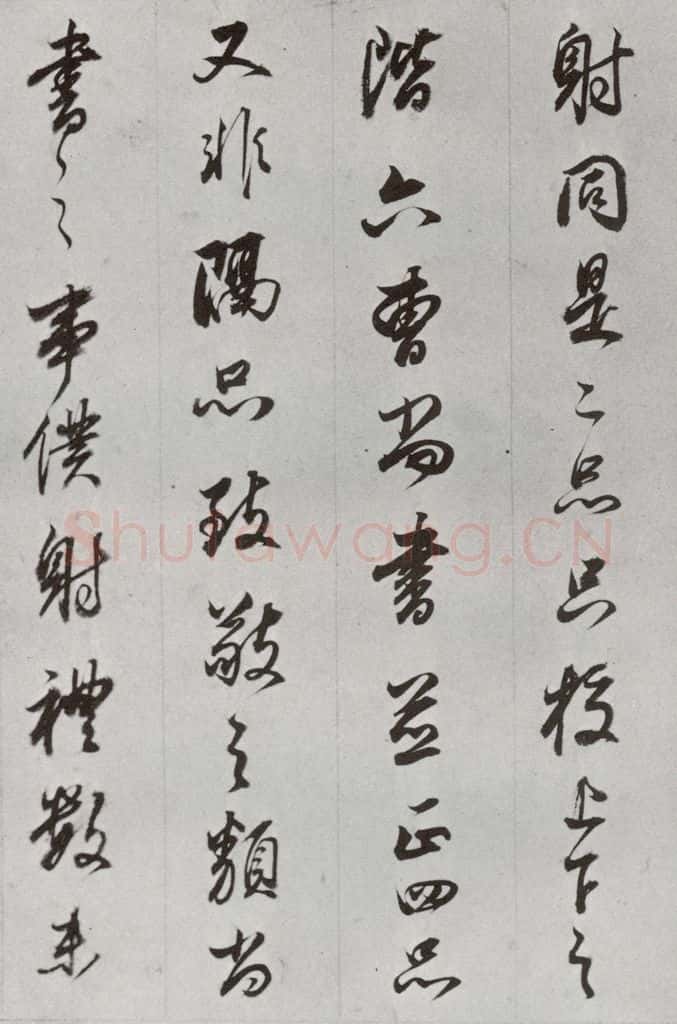 射同是二品只校上下之
階六曹尚書並正四品
又非隔品致敬之類尚
書之事僕射禮數未
Shufawang.CN